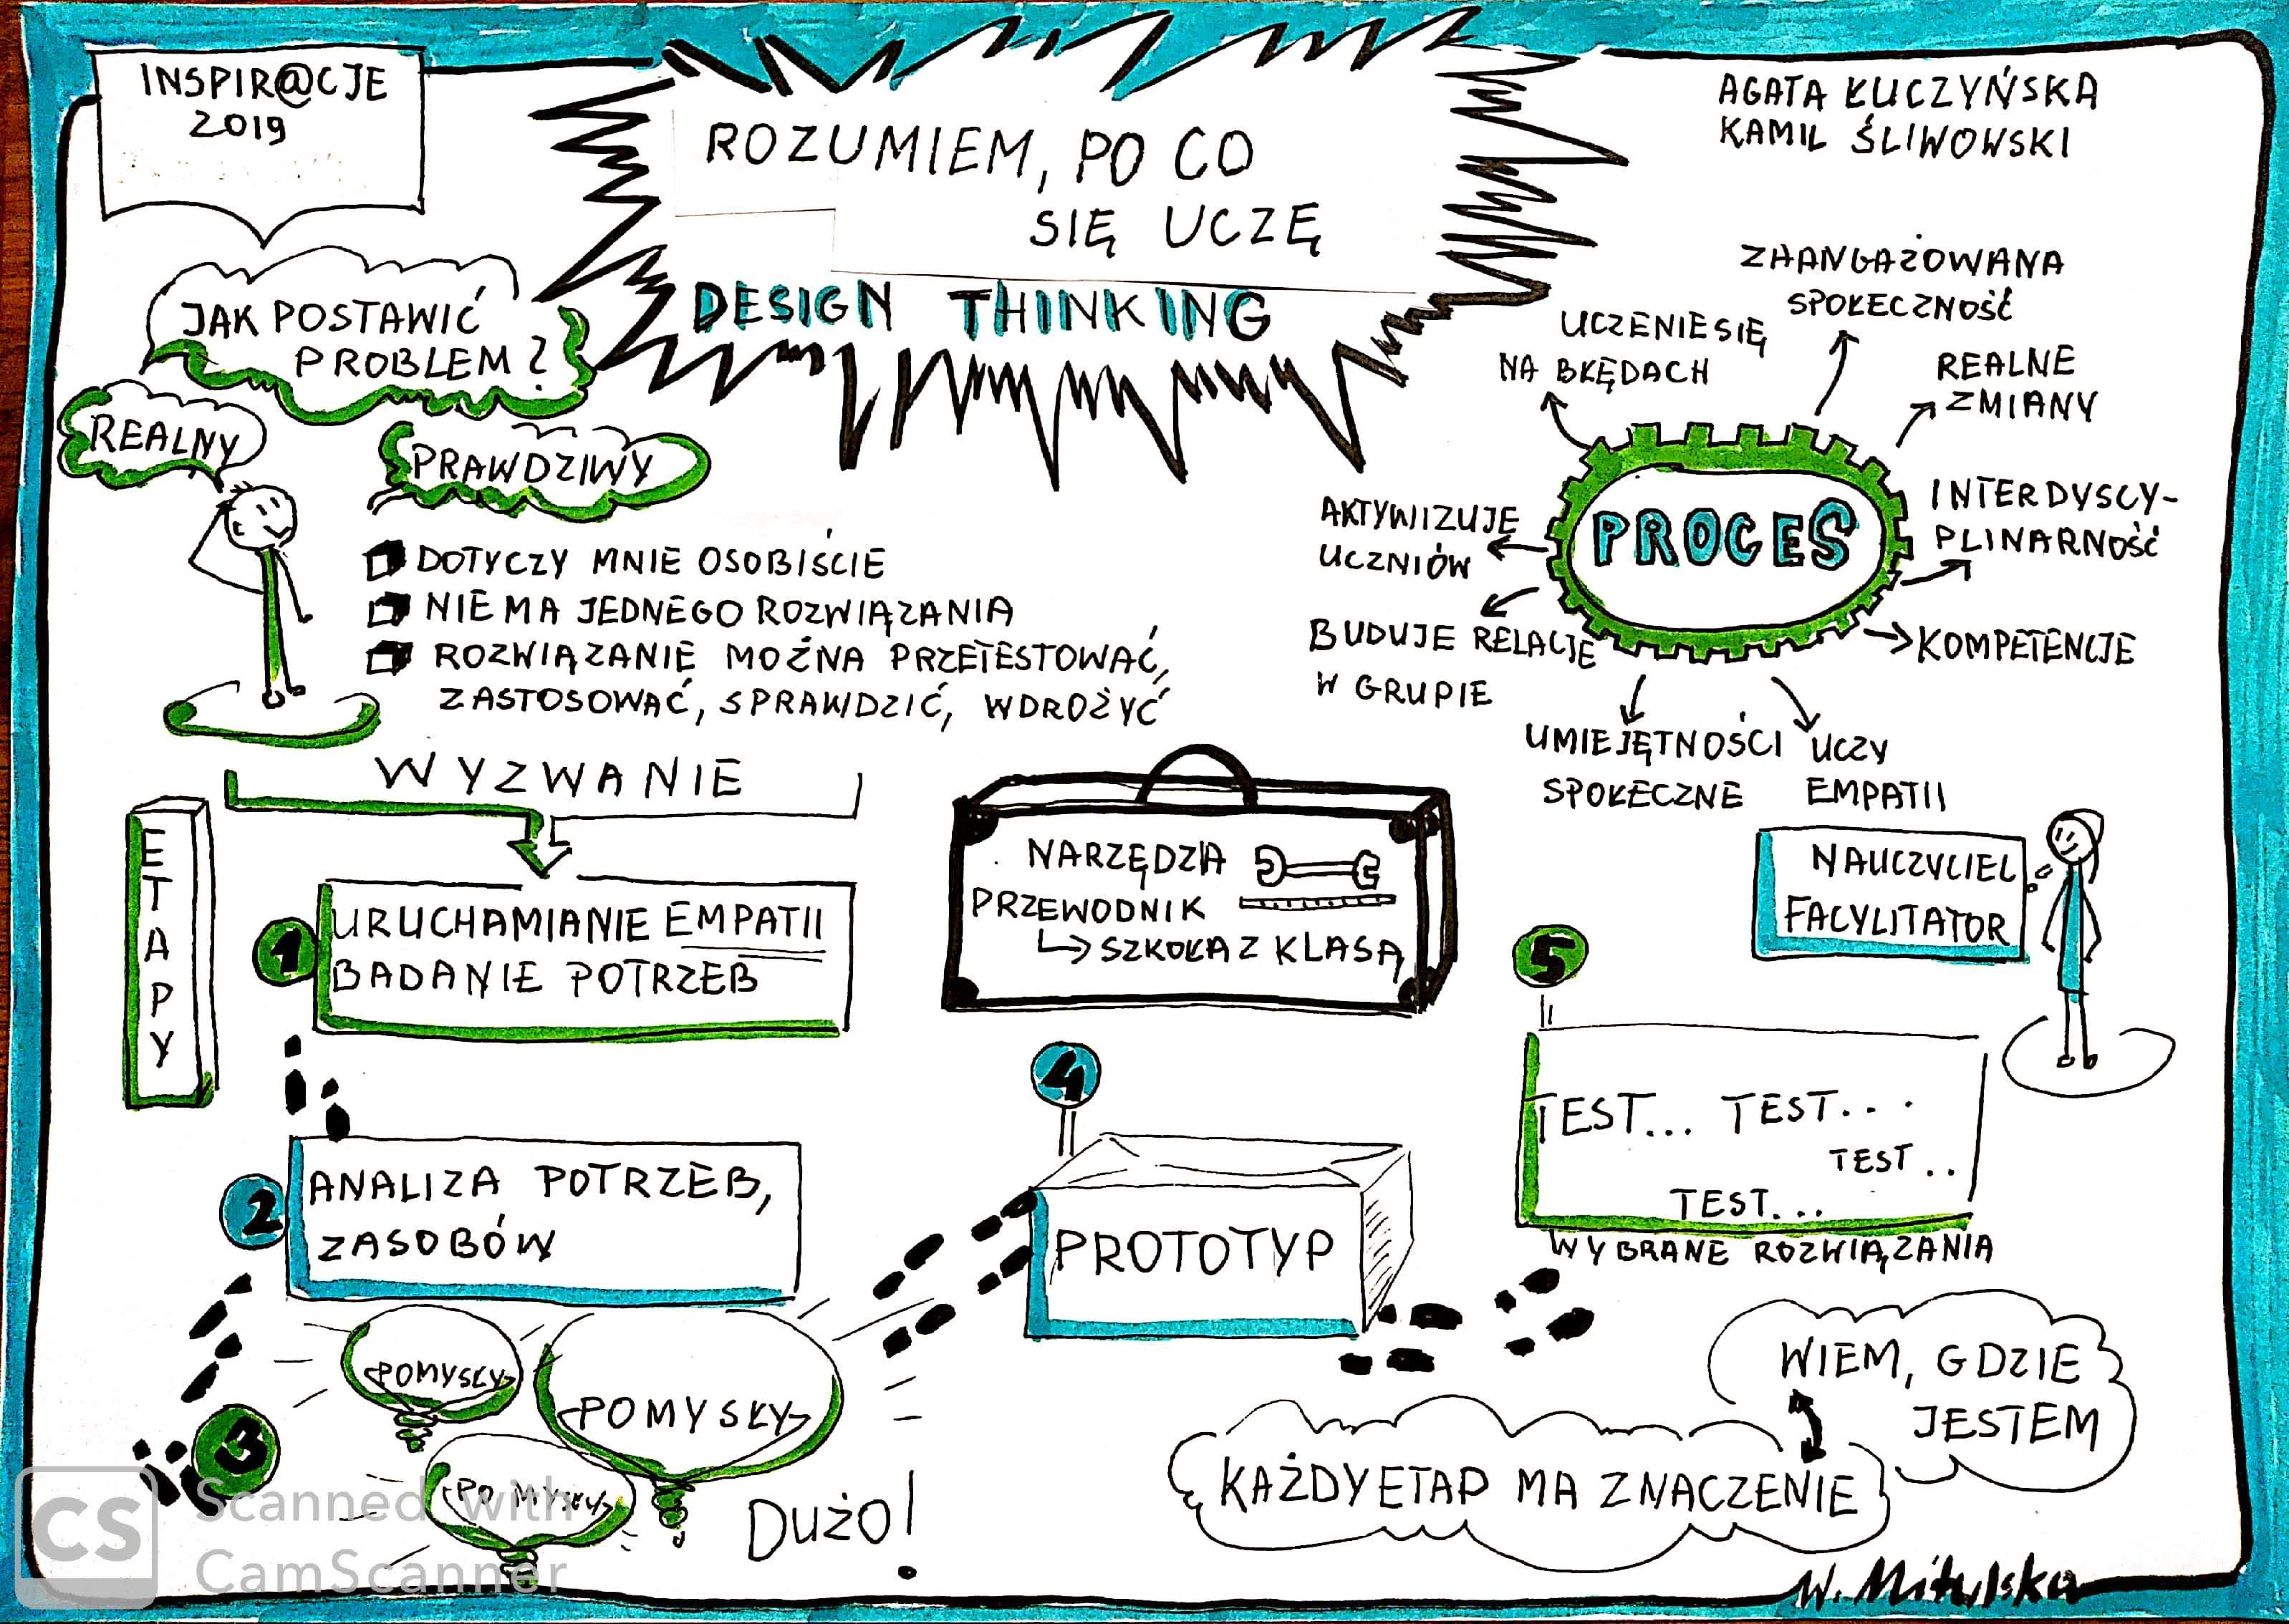 INSPIR@CJE
2019
ROZUMIEM, PO CO
SIĘ UCZĘ
DESIGN THINKING
AGATA ŁUCZYŃSKA
KAMIL ŚLIWOWSKI
JAK POSTAWIĆ
PROBLEM?
REALNY
PRAWDZIWY
DOTYCZY MNIE OSOBIŚCIE
NIE MA JEDNEGO ROZWIĄZANIA
ROZWIĄZANIE MOŻNA PRZETESTOWAĆ,
ZASTOSOWAĆ, SPRAWDZIĆ, WDROŻYĆ
ZAANGAŻOWANA
SPOŁECZNOŚĆ
UCZENIE SIĘ
NA BŁĘDACH
REALNE
ZMIANY
AKTYWIZUJE
UCZNIÓW
PROCES
INTERDYSCY-
PLINARNOŚĆ
BUDUJE RELACJE
W GRUPIE
KOMPETENCJE
UMIEJĘTNOŚCI
SPOŁECZNE
UCZY
EMPATII
WYZWANIE
ETAPY
1
URUCHAMIANIE EMPATII
BADANIE POTRZEB
NARZĘDZIA
PRZEWODNIK
SZKOŁA Z KLASĄ
NAUCZYCIEL
FACYLITATOR
2
ANALIZA POTRZEB,
ZASOBÓW
3
POMYSŁY
POMYSŁY
POMYSŁY
DUŻO!
4
PROTOTYP
5
TEST... TEST...
TEST..
TEST...
WYBRANE ROZWIĄZANIA
WIEM, GDZIE
JESTEM
KAŻDY ETAP MA ZNACZENIE
W. Mitulska
CS
Scanned with
CamScanner